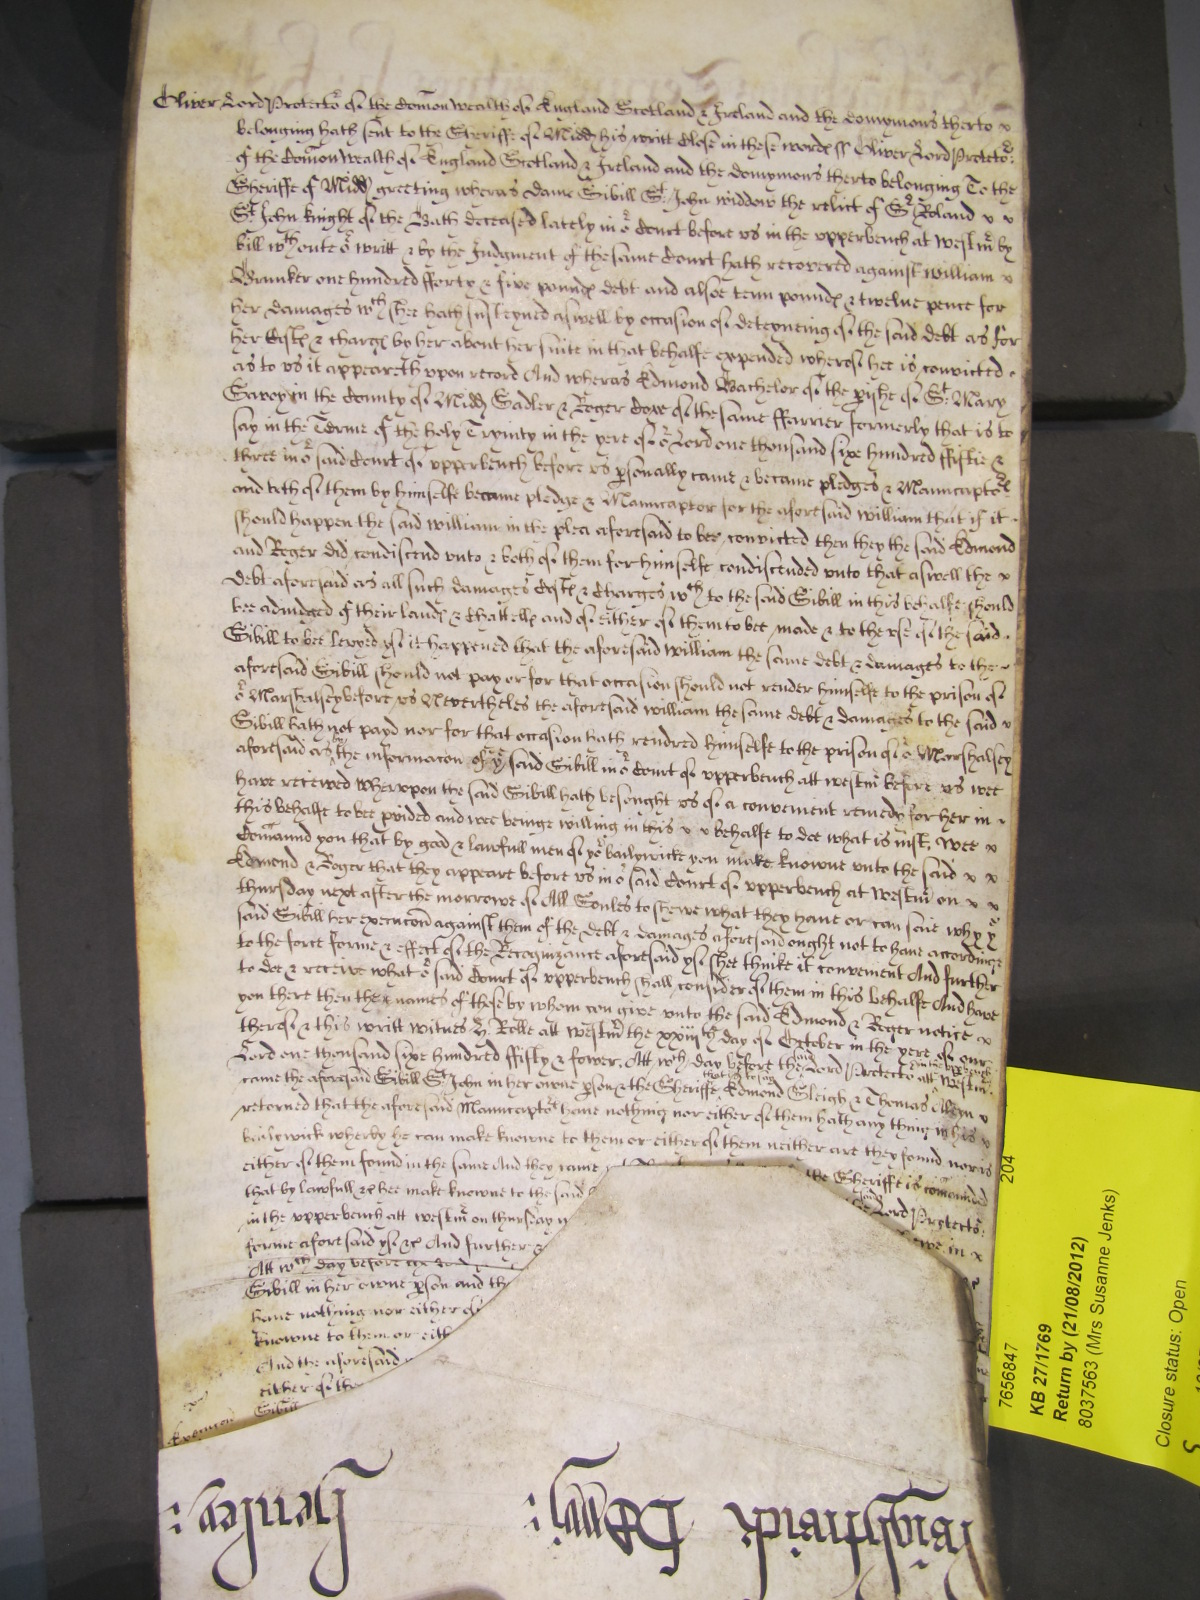 Oliver Lord Protector of the Comon Wealth of England Scotland & Ireland and the Domynions therto x
belonging hath sent to the Sheriffe of Midd his writt close in these words ss Oliver Lord Protector
of the Comon Wealth of England Scotland & Ireland and the Domynions therto belonging To the
Sheriffe of Midd greeting wheras Dame Sibill St. John widdow the relict of Sr Roland v v
St John knight of the Bath deceased lately in or Court before us in the upperbench at Westmr by
bill wthoute or writt & by the Judgment of the same Court hath recovered against William v
Brunker one hundred fforty & five pounds debt and alsoe tenn pounds & twelve pence for
her damages wch shee hath susteyned aswell by occasion of deteyneing of the said debt as for
her Costs & charges by her about her suite in that behalfe expended wherof hee is convicted
as to us it appeareth upon record And wheras Edmond Bachelor of the pishe of St. Mary
Savoy in the County of Midd Sadler & Roger Coxe of the same ffarrier formerly that is to
say in the Terme of the holy Trynity in the yere of or Lord one thousand sixe hundred ffiftie &
three in or said Court of upperbench before us psonally came & became pledges & Manucaptors
and both of them by himselfe became pledge & Manucaptor for the aforesaid William that if it
should happen the said William in the plea aforesaid to bee convicted then they the said Edmond
and Roger did condiscend unto & both of them for himselfe condiscended unto that aswell the x
debt aforesaid as all such damages Costs & Charges wch to the said Sibill in this behalfe should
bee adiudged of their lands & Chattells and of either of them to bee made & to the use of the said
Sibill to bee levyed if it happened that the aforesaid William the same debt & damages to the
aforesaid Sibill should not pay or for that occasion should not render himselfe to the prison of
or Marshalsey before us Nevertheles the aforesaid William the same debt & damages to the said v
Sibill hath not payd nor for that occasion hath rendred himselfe to the prison of or Marshalsey
aforesaid as by the informacon of ye said Sibill in or Court of upperbench att Westmr before us wee
have received Wherupon the said Sibill hath besought us of a convenient remedy for her in
this behalfe to bee pvided and wee beinge willing in this v v behalfe to doe what is iust. Wee x
Comaund you that by good & lawfull men of yor bailywicke you make knowne unto the said x x
Edmond & Roger that they appeare before us in or said Court of upperbench at Westmr on x x
thursday next after the morrowe of All Soules to shewe what they have or can saie why ye
said Sibill her execucon against them of the debt & damages aforesaid ought not to have accordinge
to the force forme & effect of the Recognizance aforesaid yf shee thinke it convenient And further
to doe & receive what or said Court of upperbench shall consider of them in this behalfe And have
you there then the names of those by whom you give unto the said Edmond & Roger notice x
therof & this writt Witnes H. Rolle att Westmr the xxiiith day of October in the yere of our
Lord one thousand sixe hundred ffifty & fower. Att wch day before the said Lord Protector in the upperbench att Westmr
came the aforesaid Sibill St. John in her owne pson & the Sheriffe that is to say Edmond Sleigh & Thomas Aleyn v
returned that the aforesaid Manucaptors have nothing nor either of them hath any thing in his v
bailywick wherby he can make knowne to them or either of them neither are they found nor is
either of them found in the same And they came
the Sheriffe is comanded
that by lawfull &c hee make knowne to the said
said Lord Protector
in the upperbench att Westmr on thursday n
forme aforesaid yf &c And further &
ewe in x
Att wch day before
Sibill in her owne pson and th
have nothing nor either of
knowne to them or eith
And the aforesaid
either of the
Sibill
Execucon
Henley:
204
7656847
KB 27/1769
Return by (21/08/2012)
8037563 (Mrs Susanne Jenks)
Closure status: Open